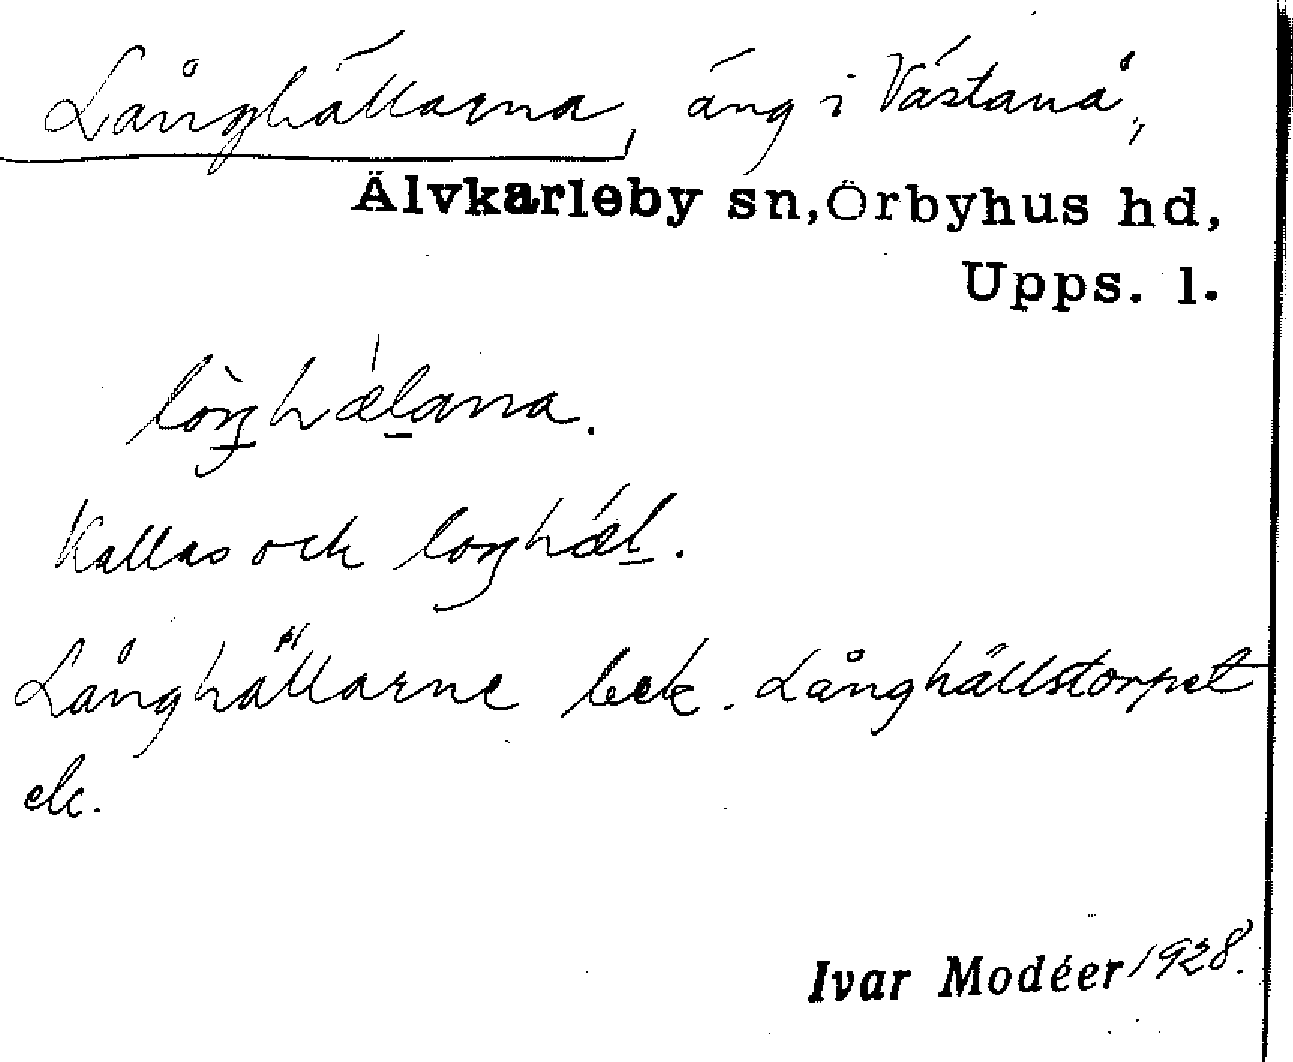 Långhällarna, äng i Västanå,
Älvkarleby sn, Örbyhus hd,
Upps. l.
lòŋhǽlana.
Kallas och loŋhǽl.
Långhällarne bek. Långhällstorpet
etc.
Ivar Modéer 1928.